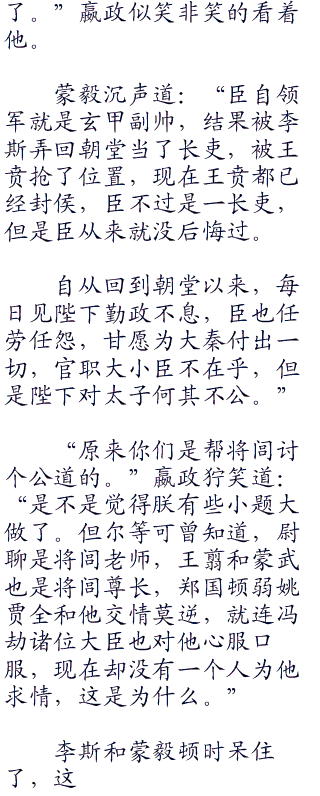 了。”嬴政似笑非笑的看着
他。
蒙毅沉声道：“臣自领
军就是玄甲副帅，结果被李
斯弄回朝堂当了长吏，被王
贲抢了位置，现在王贲都已
经封侯，臣不过是一长吏，
但是臣从来就没后悔过。
自从回到朝堂以来，每
日见陛下勤政不息，臣也任
劳任怨，甘愿为大秦付出一
切，官职大小臣不在乎，但
是陛下对太子何其不公。”
“原来你们是帮将闾讨
个公道的。”嬴政狞笑道：
“是不是觉得朕有些小题大
做了。但尔等可曾知道，尉
聊是将闾老师，王翦和蒙武
也是将闾尊长，郑国顿弱姚
贾全和他交情莫逆，就连冯
劫诸位大臣也对他心服口
服，现在却没有一个人为他
求情，这是为什么。”
李斯和蒙毅顿时呆住
了，这